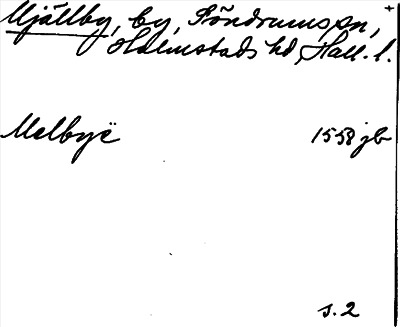 Mjällby, by, Söndrums sn,
Halmstads hd, Hall. l.
Melbyë 1558 jb
s. 2